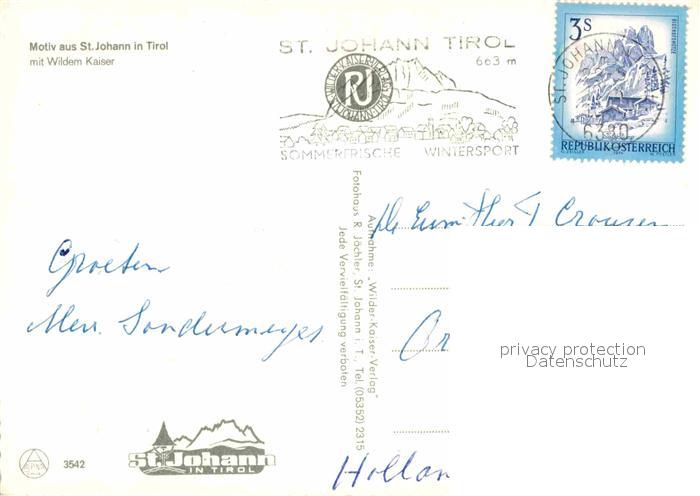 Motiv aus St. Johann in Tirol
mit Wildem Kaiser
ST. JOHANN TIROL
663 m
WILDER KAISER VERLAG
RJ
ST. JOHANN-TIROL
SOMMERFRISCHE WINTERSPORT
3S
ST. JOHANN
6380
REPUBLIK ÖSTERREICH
Groeten
Mevr. Sondermeyer
Aufnahme: „Wilder-Kaiser-Verlag"
Fotohaus R. Jöchler, St. Johann i. T., Tel. (05352) 2315
Jede Vervielfältigung verboten
T Crousen
Or
privacy protection
Datenschutz
Hollan
3542
St. Johann
IN TIROL